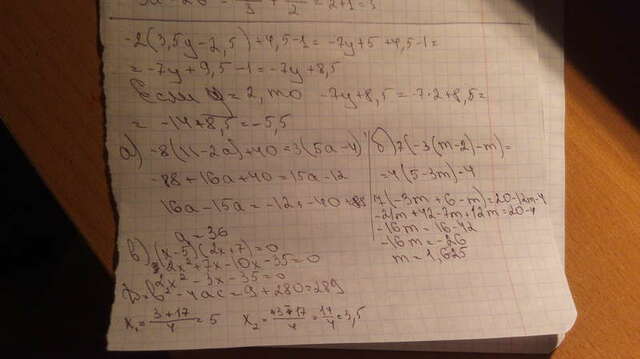 3a-2b = 9/3 + 4/2 = 2+1=3
-2(3,5y-2,5)+4,5-1= -7y+5+4,5-1=
= -7y+9,5-1=-7y+8,5
Если y=2, то -7y+8,5=-7·2+8,5=
= -14+8,5=-5,5
а) -8(11-2a)+40=3(5a-4)
-88+16a+40=15a-12
16a-15a=-12+-40+88
a=36
б) 7(-3(m-2)-m)=
-4(5-3m)-4
7(-3m+6-m)=20-12m-4
-21m+42-7m+12m=20-4
-16m=16-42
-16m=-26
m=1,625
в) (x-5)(2x+7)=0
2x²+7x-10x-35=0
2x²-3x-35=0
Д=b²-4ac=9+280=289
x₁=3+17/4=5 x₂= =14/4=3,5